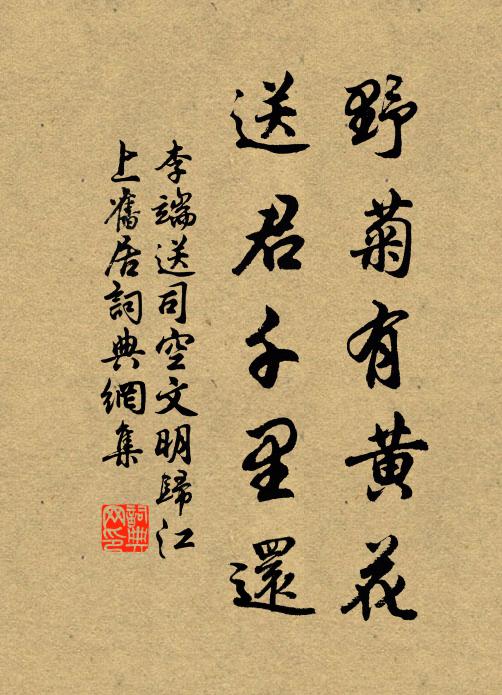 野菊有黄花
送君千里還
李端送司空文明歸江
上舊居詞典網集
詞典
网印